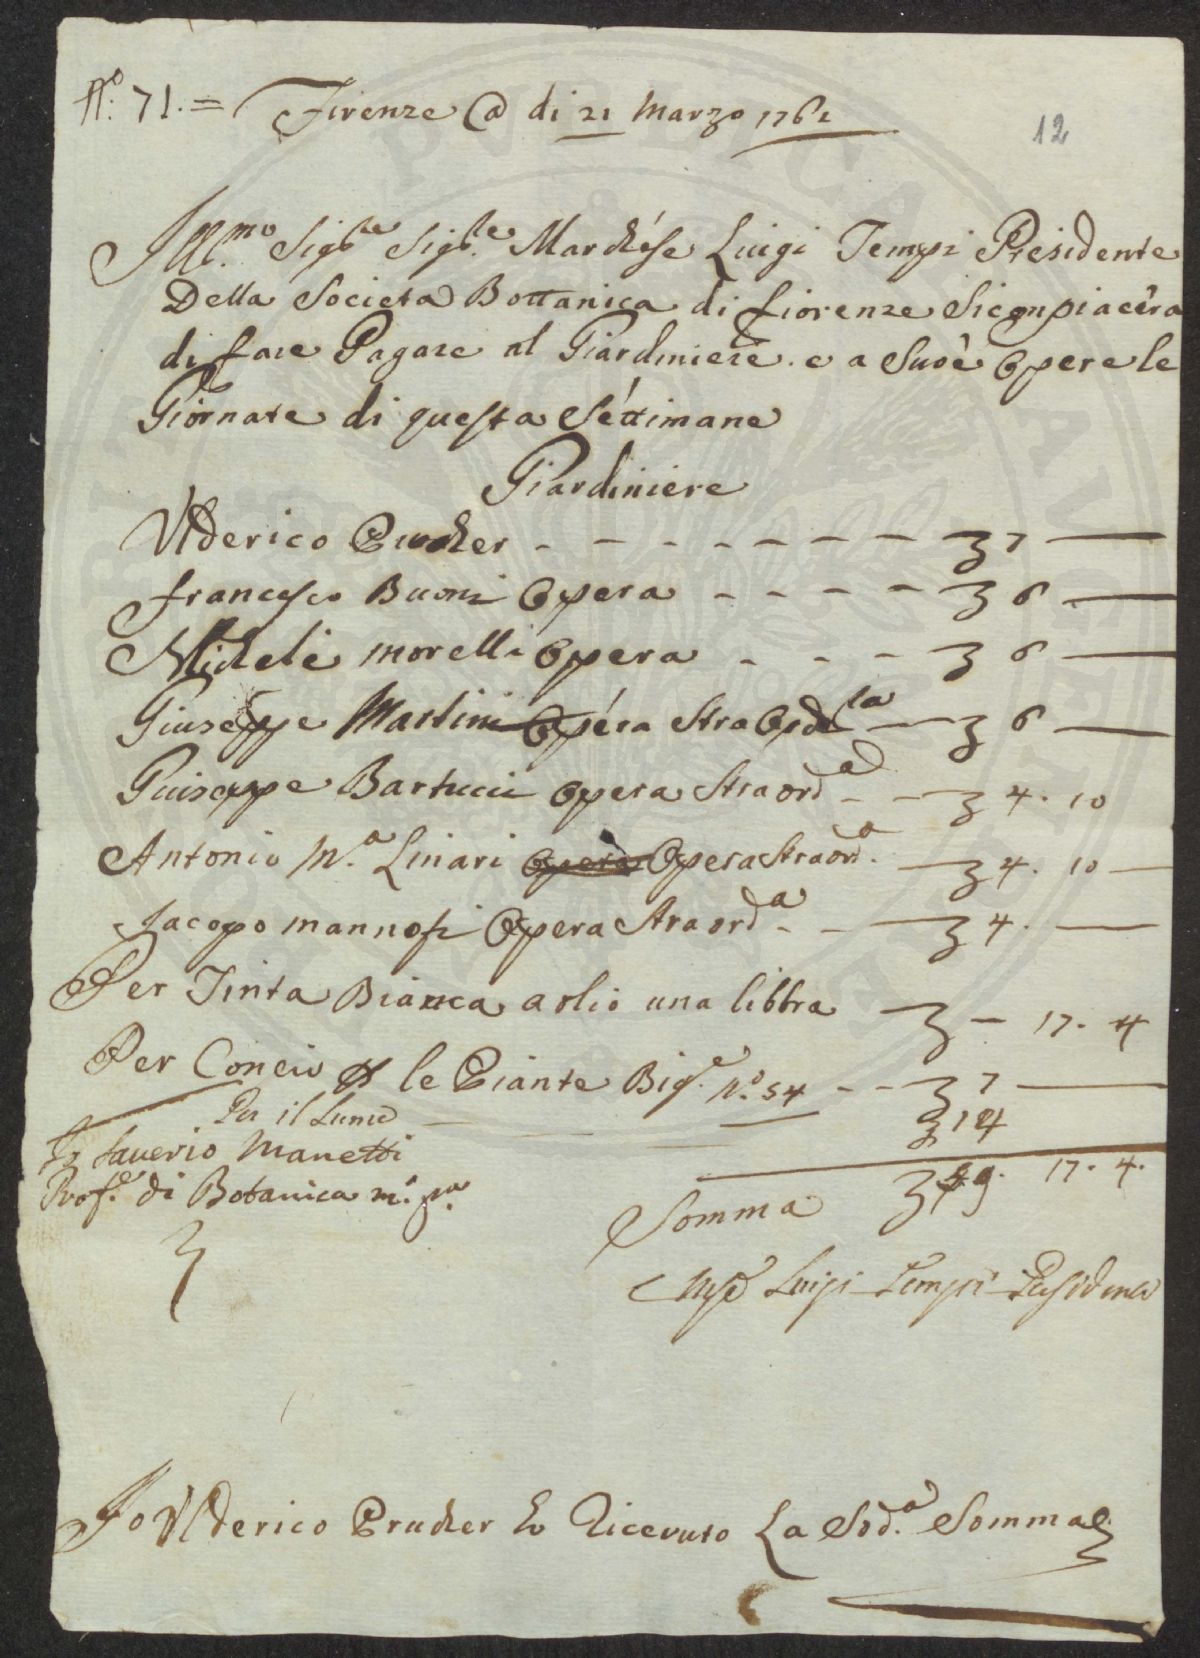 N.o 71. = Firenze @ di 21 Marzo 1762
12
Ill.mo Sig.re Sig.re Marchése Luigi Tempi Presidente
Della Societa Bottanica di fiorenze Si conpiacéra
di fare Pagare al Giardiniere e a Suoè Opere le
Giornate di questa Séttimane
Giardiniere
Vlderico Prucher - - - - - - - - 7 —
francesco Buoni Opera - - - - 6 —
Michele morelli Opera - - - 6 —
Giuseppe Martini Opéra Stra Ord.ra — 6 —
Guiseppe Bartucci opera Straord.a - - 4. 10
Antonio M.a Linari Opera Straord.a — 4. 10 —
Jacopo mannosi Opera Straord.a - - 4. —
Per Tinta Bianca a olio una libbra — - 17. 4
Per Concio le Piante Big.e N.o 54 - - 7 —
Per il Lume 14
Io Saverio Manetti
Prof.e di Botanica m.o p.a
Somma 49. 17. 4.
Luigi Tempi Presidente
Io Vlderico Prucher ho Riceuuto La Sod.a Somma